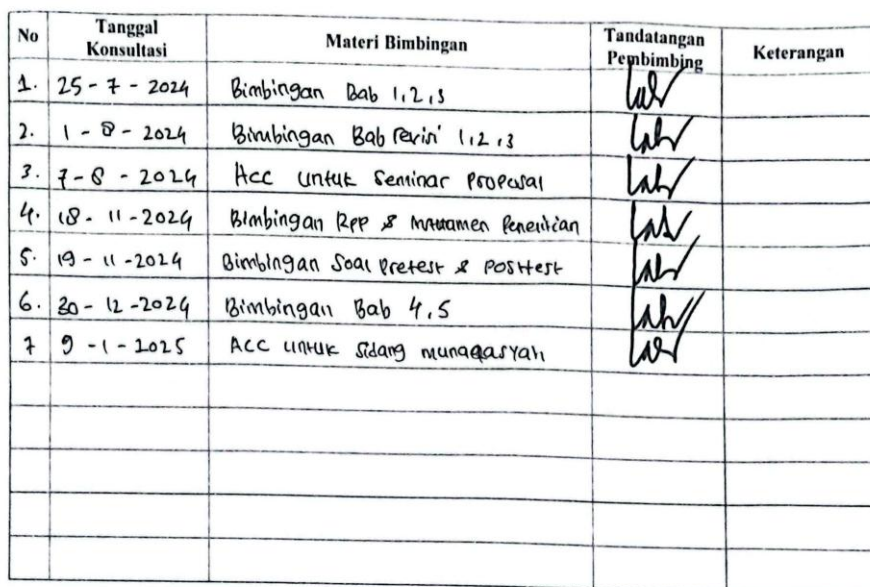 No Tanggal Konsultasi Materi Bimbingan Tandatangan Pembimbing Keterangan
1. 25 - 7 - 2024 Bimbingan Bab 1,2,3
2. 1 - 8 - 2024 Bimbingan Bab revisi 1,2,3
3. 7 - 8 - 2024 Acc untuk Seminar Proposal
4. 18 - 11 - 2024 Bimbingan Rpp & Instrumen Penelitian
5. 19 - 11 - 2024 Bimbingan Soal Pretest & Posttest
6. 30 - 12 - 2024 Bimbingan Bab 4,5
7 9 - 1 - 2025 ACC untuk Sidang munaqasyah